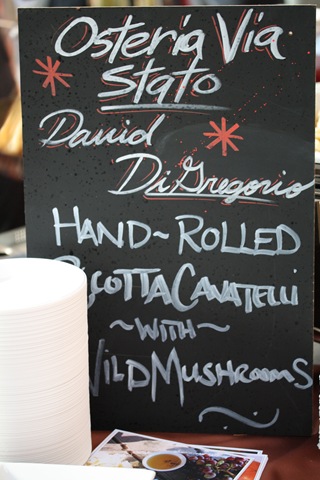 Osteria Via
Stato
David
DiGregorio
HAND~ROLLED
RICOTTA CAVATELLI
~WITH~
WILD MUSHROOMS